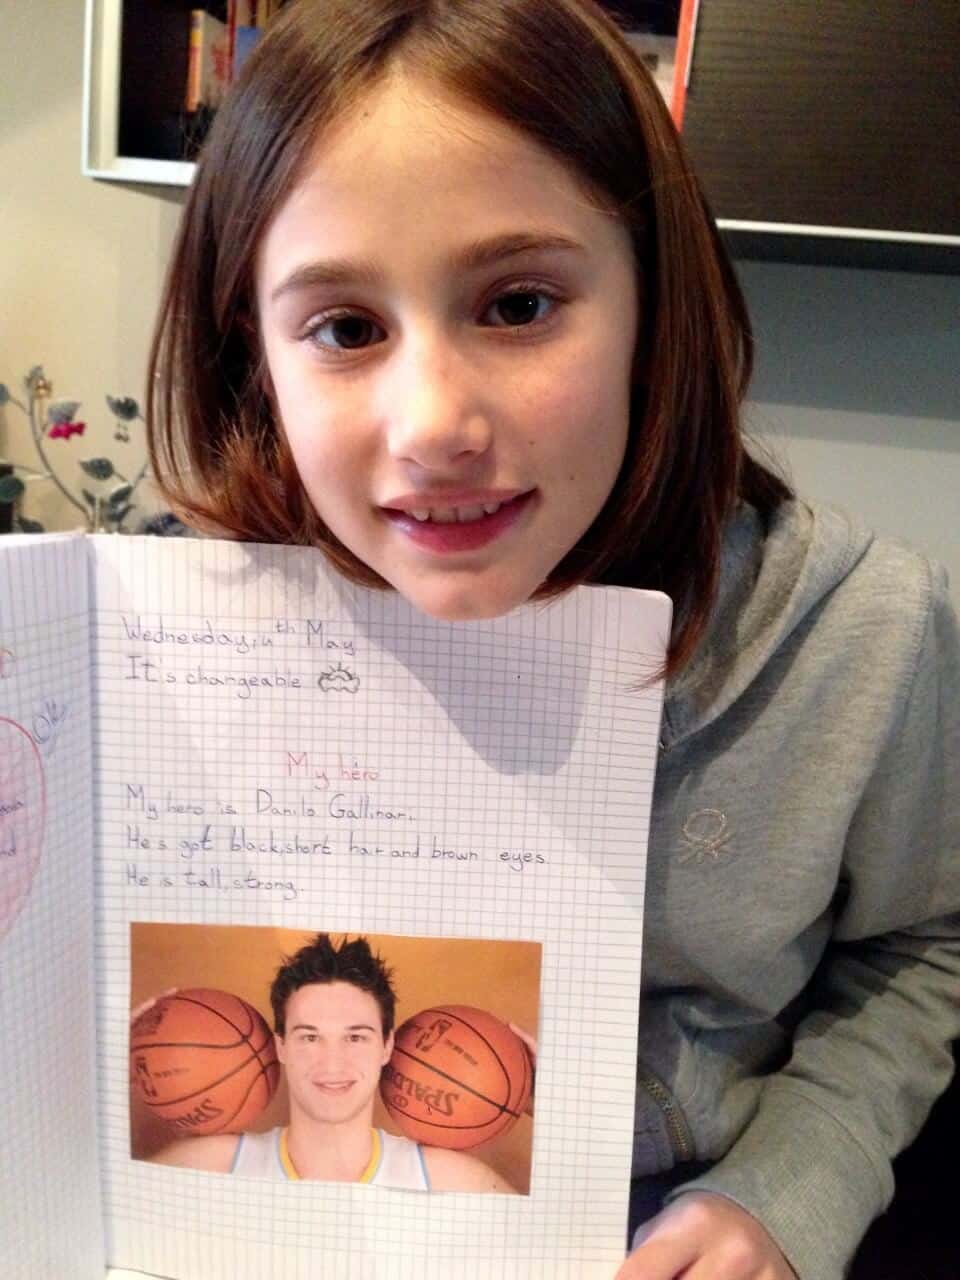 Wednesday, 4th May
It's changeable
My hero
My hero is Danilo Gallinari.
He's got black, short hair and brown eyes.
He is tall, strong.
SPALDING
SPALDING